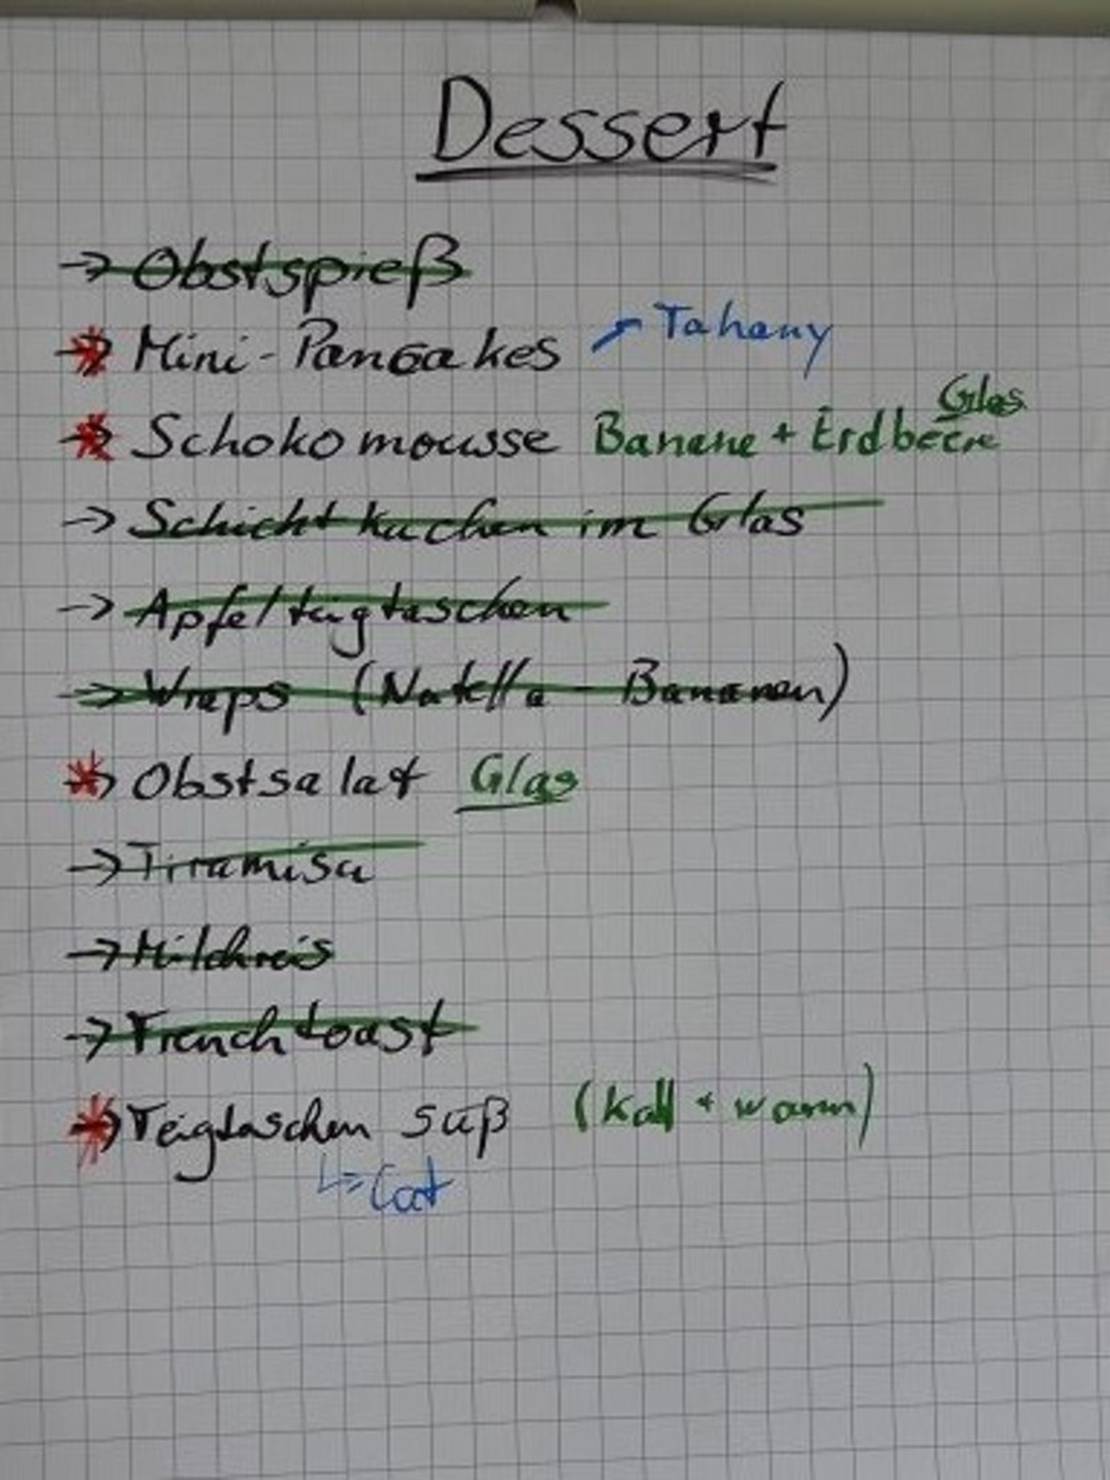 Dessert
→ Obstspieß
→ Mini-Pancakes ↗ Tahany
→ Schokomousse Banane + Erdbeere Glas
→ Schichtkuchen im Glas
→ Apfelteigtaschen
→ Wraps (Nutella - Bananen)
→ Obstsalat Glas
→ Tiramisu
→ Milchreis
→ Frenchtoast
→ Teigtaschen süß (kalt + warm)
↳ Cat